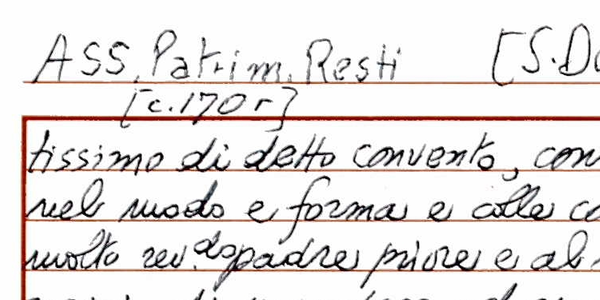 ASS, Patrim. Resti [S. Do
[c. 170 r]
tissimo di detto convento, con
nel modo e forma e colle co
molto rev.do padre priore e al